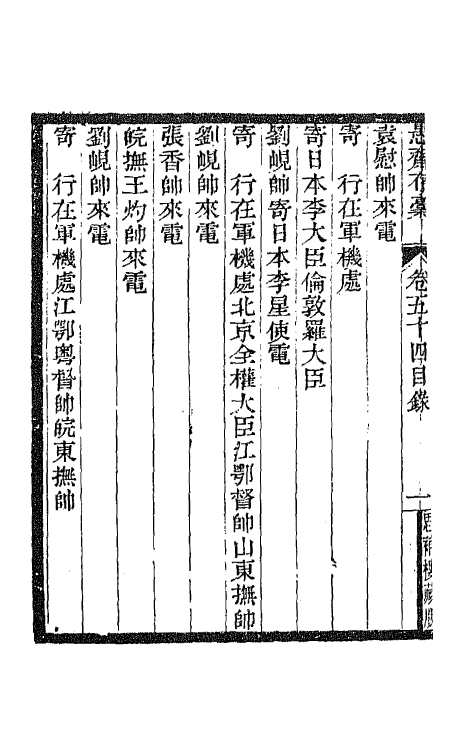 愚齋存稾
卷五十四目錄
一
思補樓藏版
袁慰帥來電
寄　行在軍機處
寄日本李大臣倫敦羅大臣
劉峴帥寄日本李星使電
寄　行在軍機處北京全權大臣江鄂督帥山東撫帥
劉峴帥來電
張香帥來電
皖撫王灼帥來電
劉峴帥來電
寄　行在軍機處江鄂粵督帥皖東撫帥